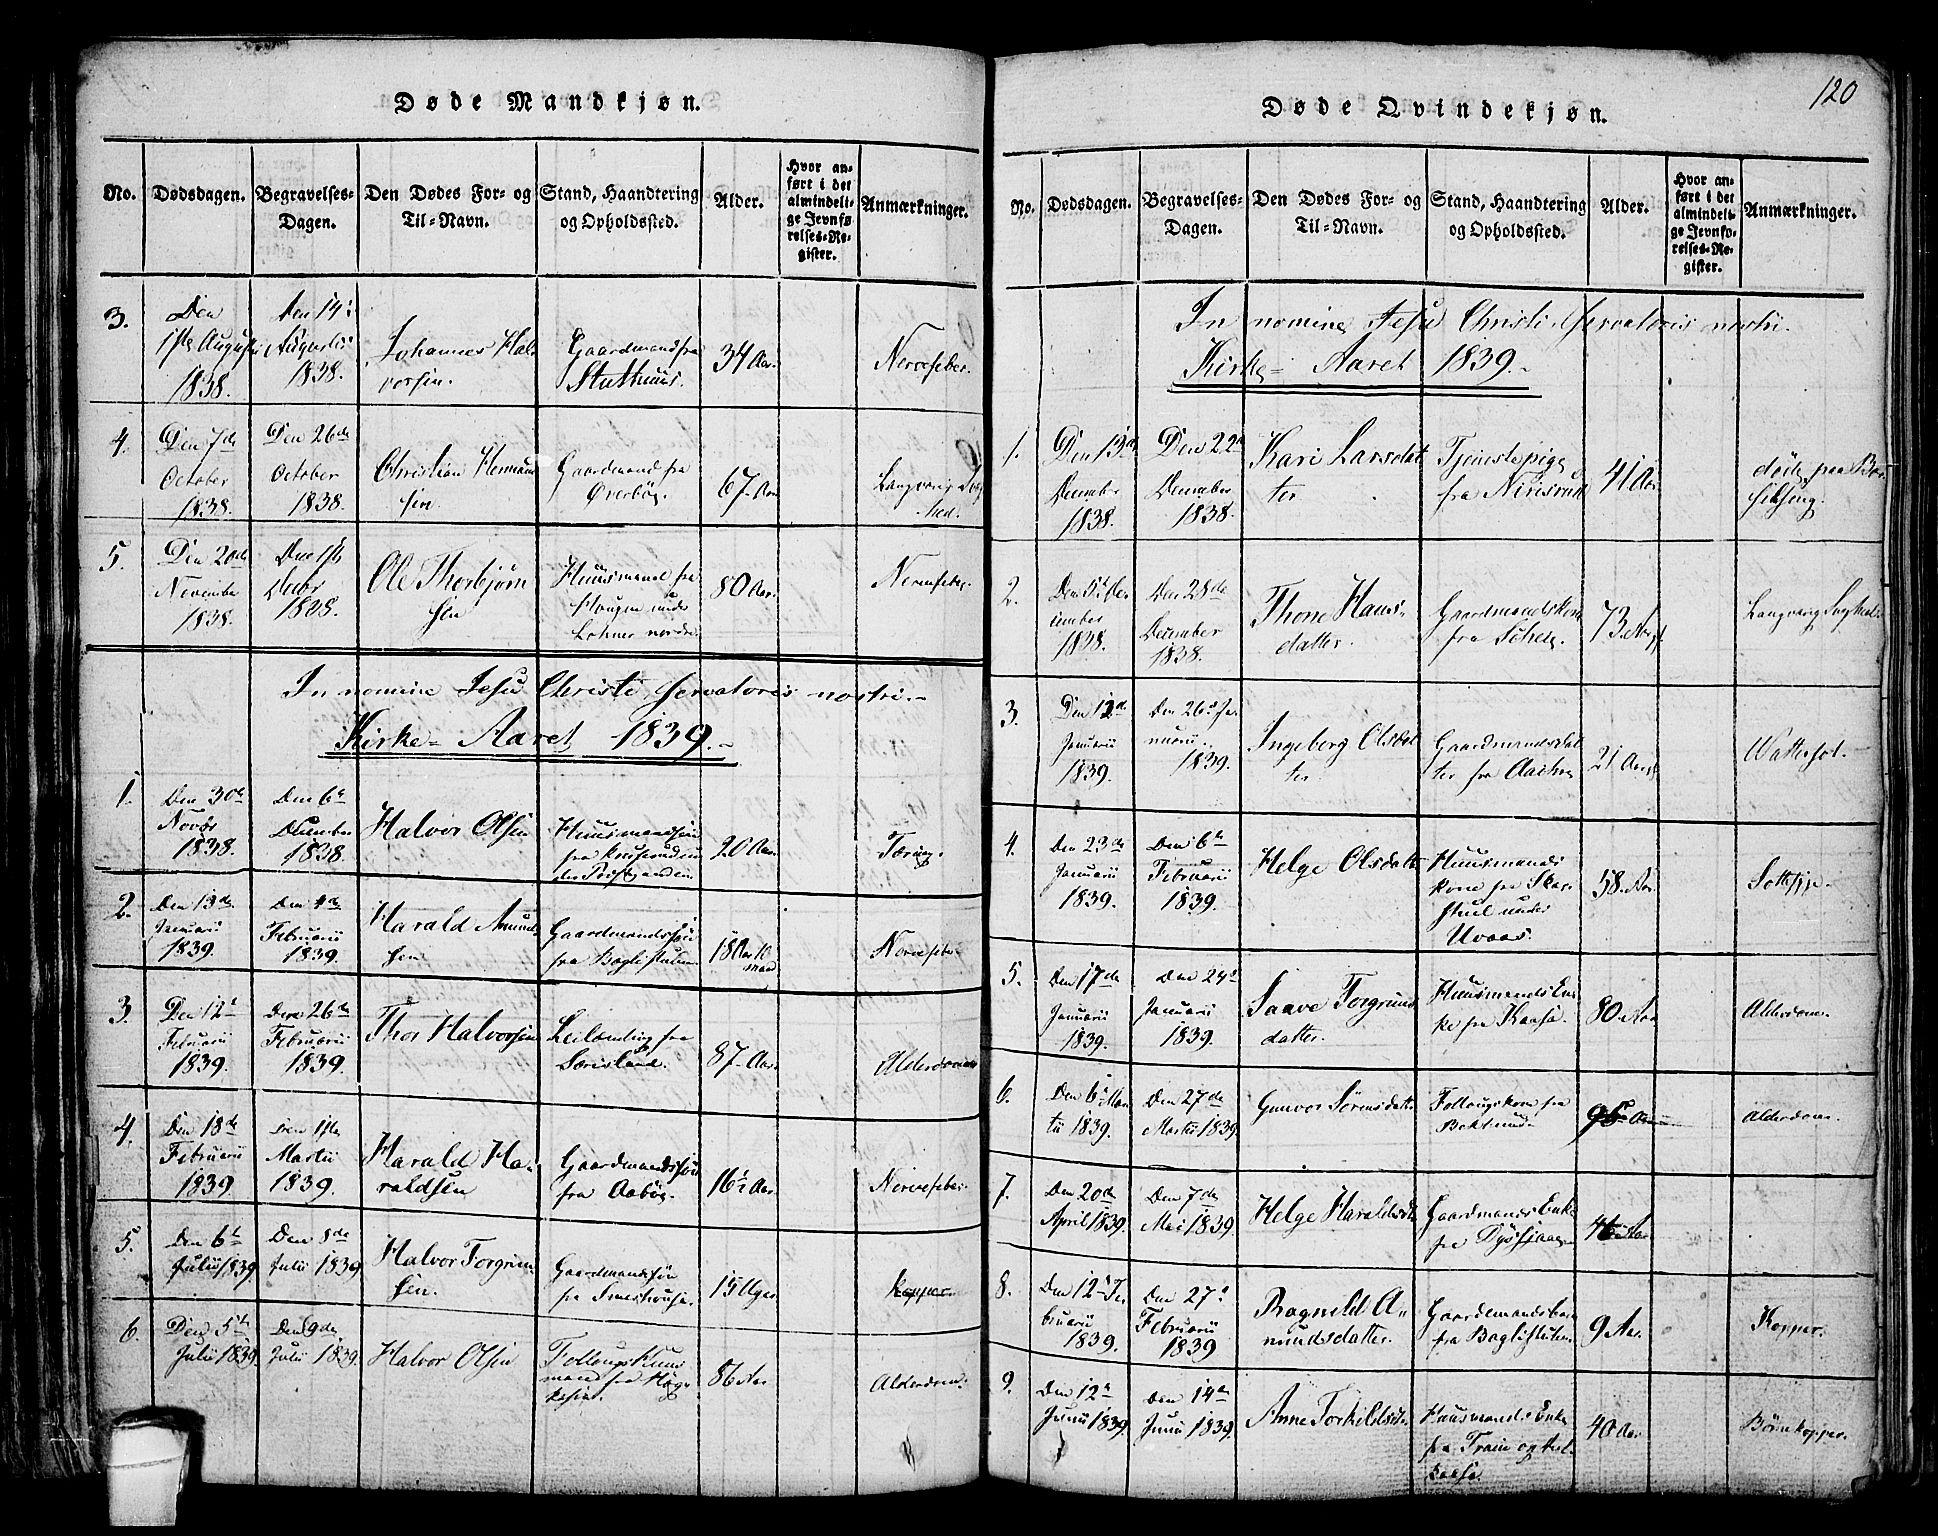 120
Døde Mandkjøn.
No. Dødsdagen. Begravelses-Dagen. Den Dødes For- og Til-Navn. Stand, Haandtering og Opholdssted. Alder. Hvor anført i det almindelige Jevnførelses-Register. Anmærkninger.
3. Den 1ste August 1838. Den 14. Augusti 1838. Johannes Halvorsen. Gaardmand fra Stuthuus. 34 Aar. Nervefeber.
4. Den 7de October 1838. Den 26de October 1838. Christian Hermansen Gaardmand fra Øverbøe. 67 Aar Langvarig
5. Den 20de November 1838. Den 1ste Decbr 1838. Ole Thorbjørnsen Huusmand fra Haugen under Lohner nordre. 80 Aar. Nervefeber.
In nomine Jesu Christi servatoris nostri.
Kirke-Aaret 1839.
1. Den 30te Novbr 1838. Den 6te December 1838. Halvor Olsen Huusmandssøn fra 20 Aar. Tæring.
2. Den 13de Januarii 1839. Den 4de Februarii 1839. Harald Amundsen Gaardmandssøn fra Boglistulen 18 Aar 10 maad Nervefeber
3. Den 12te Februarii 1839. Den 26de Februarii 1839. Thor Halvorsen Leilænding fra Sørisland. 87 Aar. Alderdom
4. Den 18de Februarii 1839. Den 1ste Martii 1839. Harald Haraldsen Gaardmandssøn fra Aabøe. 16½ Aar. Nervefeber.
5. Den 6te Julii 1839 Den 8de Julii 1839 Halvor Torgrimsen. Gaardmandssøn fra 15 Uger Kopper
6. Den 5te Julii 1839. Den 9de Julii 1839. Halvor Olsen Follougskuusmand fra 86 Aar Alderdom.
Døde Qvindekjøn.
No. Dødsdagen. Begravelses-Dagen. Den Dødes For- og Til-Navn. Stand, Haandtering og Opholdssted. Alder. Hvor anført i det almindelige Jevnførelses-Register. Anmærkninger.
In nomine Jesu Christi servatoris nostri.
Kirke-Aaret 1839.
1. Den 13de December 1838. Den 22de December 1838. Kari Larsdatter. Tjenestepige fra 41 Aar. døde paa Barselseng.
2. Den 5te December 1838. Den 28de December 1838. Thone Hansdatter. Gaardmandskone fra Schee. 73 Aar Langvarig Sygdom
3. Den 12de Januarii 1839. Den 26de Januarii 1839. Ingeberg Olsdatter. Gaardmandsdatter fra 21 Aar Wattersot.
4. Den 23de Januarii 1839. Den 6te Februarii 1839. Helge Olsdatter Huusmandskone fra under Uvaas. 58 Aar
5. Den 17de Januarii 1839. Den 24de Januarii 1839. Saave Torgrimsdatter. Huusmands Enke fra Kaasa. 80 Aar Alderdom.
6. Den 6te Martii 1839. Den 27de Martii 1839. Gunvor Sørensdatter Follougskone fra 95 Aar Alderdom.
7. Den 20de April 1839. Den 7de Mai 1839. Helge Haraldsdtr Gaardmands Enke fra 46 Aar
8. Den 12te Februarii 1839. Den 27de Februarii 1839 Ragnild Amundsdatter. Gaardmandsbarn fra Boglistulen. 9 Aar Kopper.
9. Den 12te Junii 1839. Den 14de Junii 1839. Anne Torkildsdtr Huusmands Enke fra 40 Aar Børnekopper.